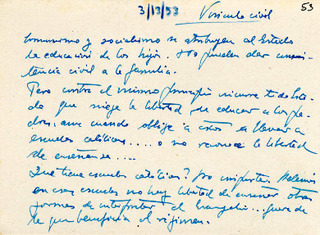 3/13/53 Vínculo civil 53
Comunismo y socialismo se atribuyen al Estado
la educación de los hijos. No pueden dar consis-
tencia civil a la familia.
Pero contra el mismo principio incurre todo Esta-
do que niega la libertad de educar a los pa-
dres, aun cuando obligue a estos a llevar a
escuelas católicas.... o no reconoce la libertad
de enseñanza....
Qué tiene escuelas católicas? No importa. Además
en esas escuelas no hay libertad de enseñar otras
formas de interpretar el evangelio... fuera de
la que beneficia al régimen.